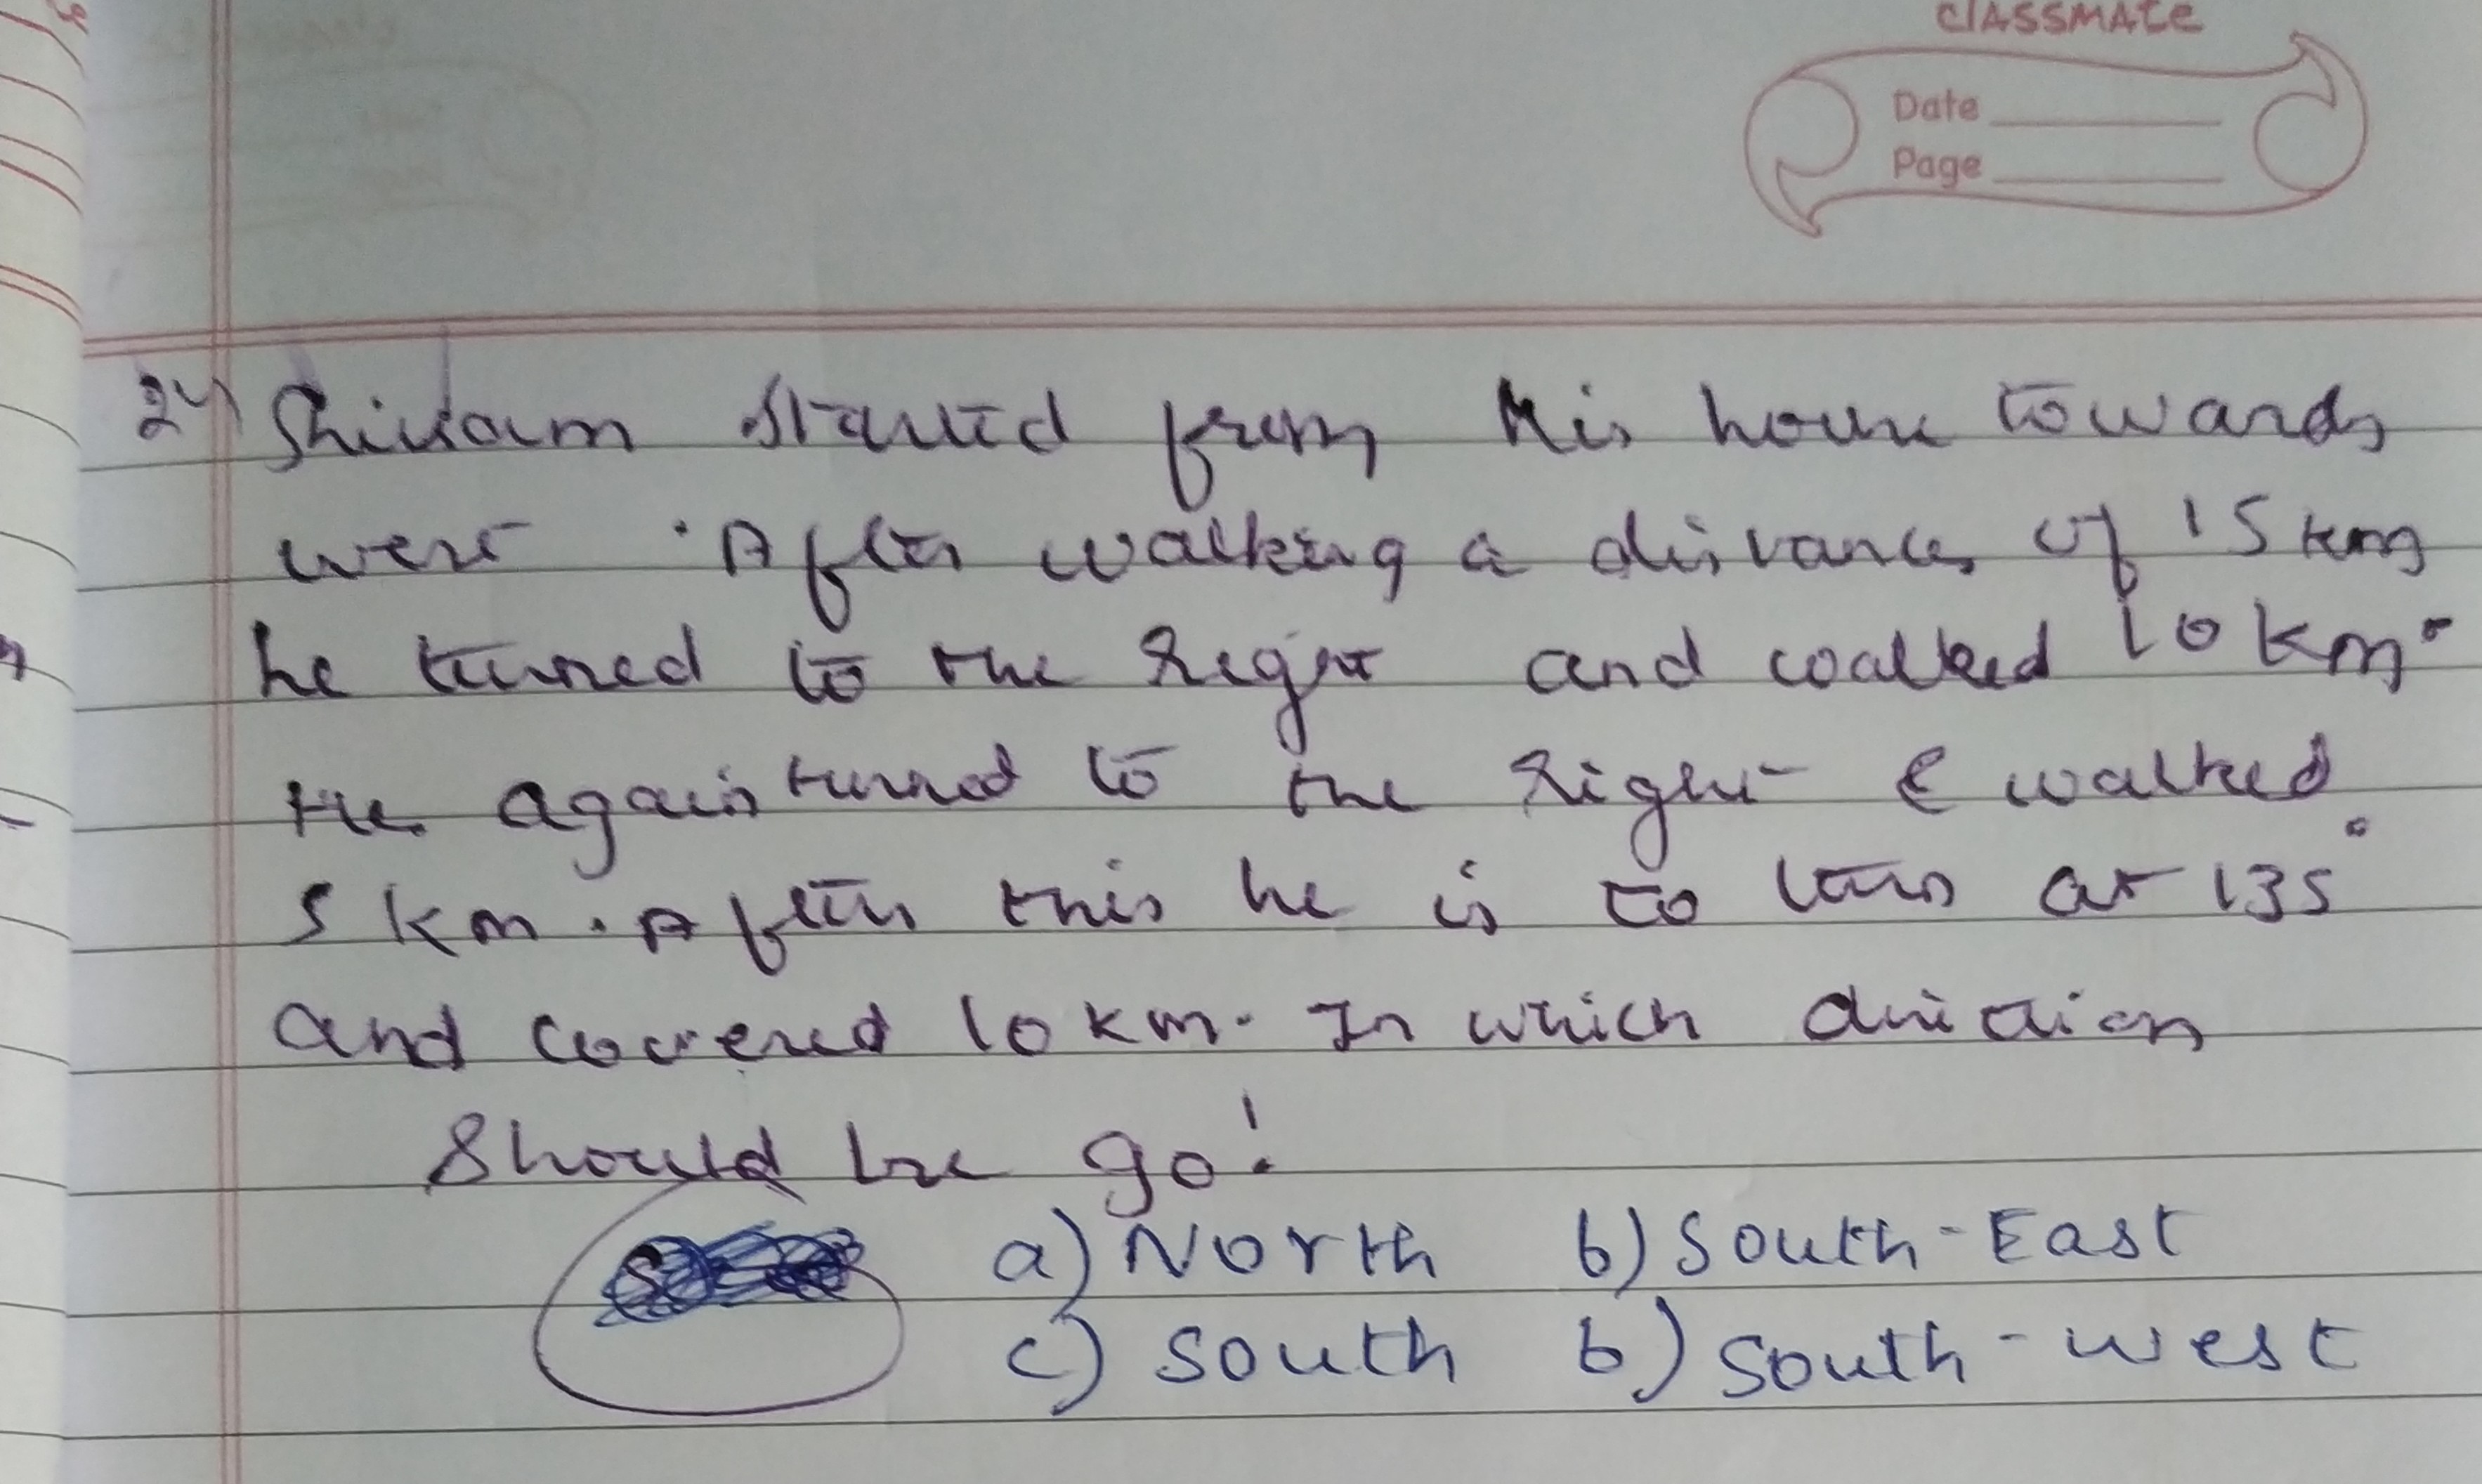 classmate
Date
Page
24) Shivam started from his house towards
west . After walking a distance of 15 km
he turned to the right and walked 10 km.
He again turned to the right & walked
5 km . After this he is to turn at 135°
and covered 10 km. In which direction
should he go!
a) North b) South-East
c) South b) South-west